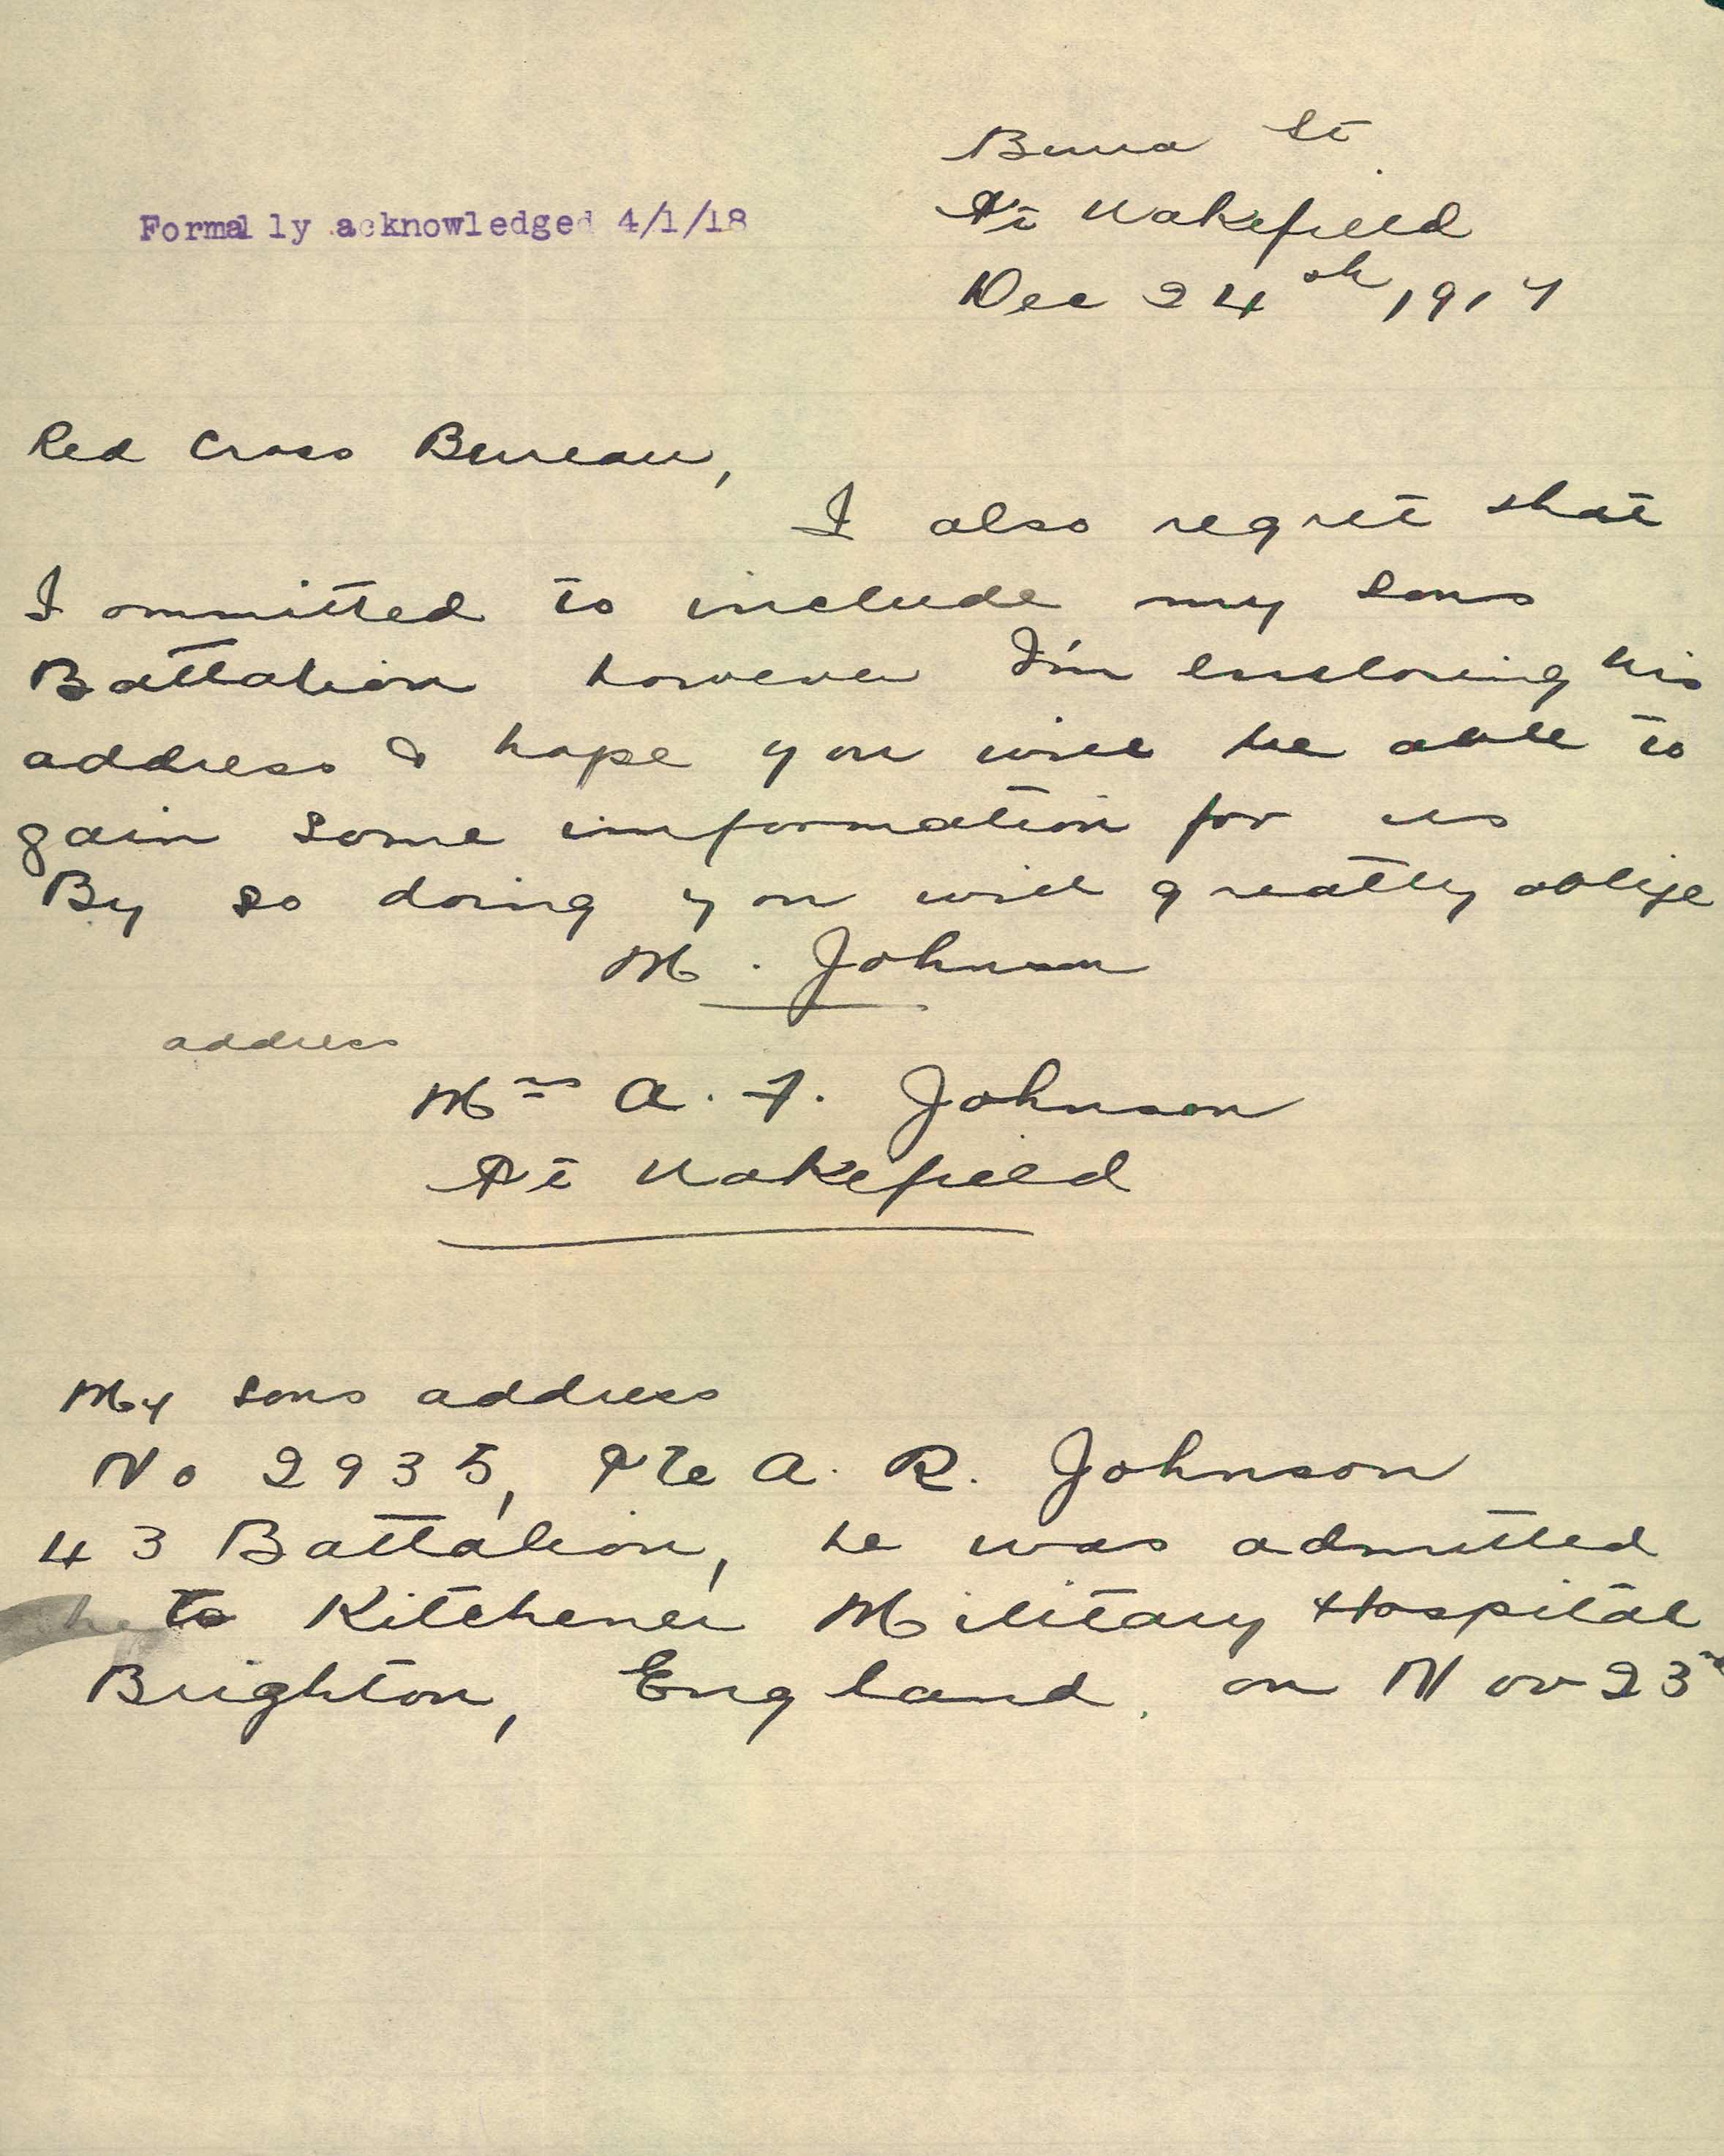 Burra St
Pt Wakefield
Formally acknowledged 4/1/18
Dec 24th, 1917
Red Cross Bureau,
I also regret that
I ommitted to include my sons
Battalion however I'm enclosing his
address & hope you will be able to
gain some imformation for us
By so doing you will greatly oblige
M. Johnson
address
Mrs A. F. Johnson
Pt Wakefield
My sons address
No 2935, Pte A. R. Johnson
43 Battalion, he was admitted
to Kitchener Military Hospital
Brighton, England. on Nov 23rd